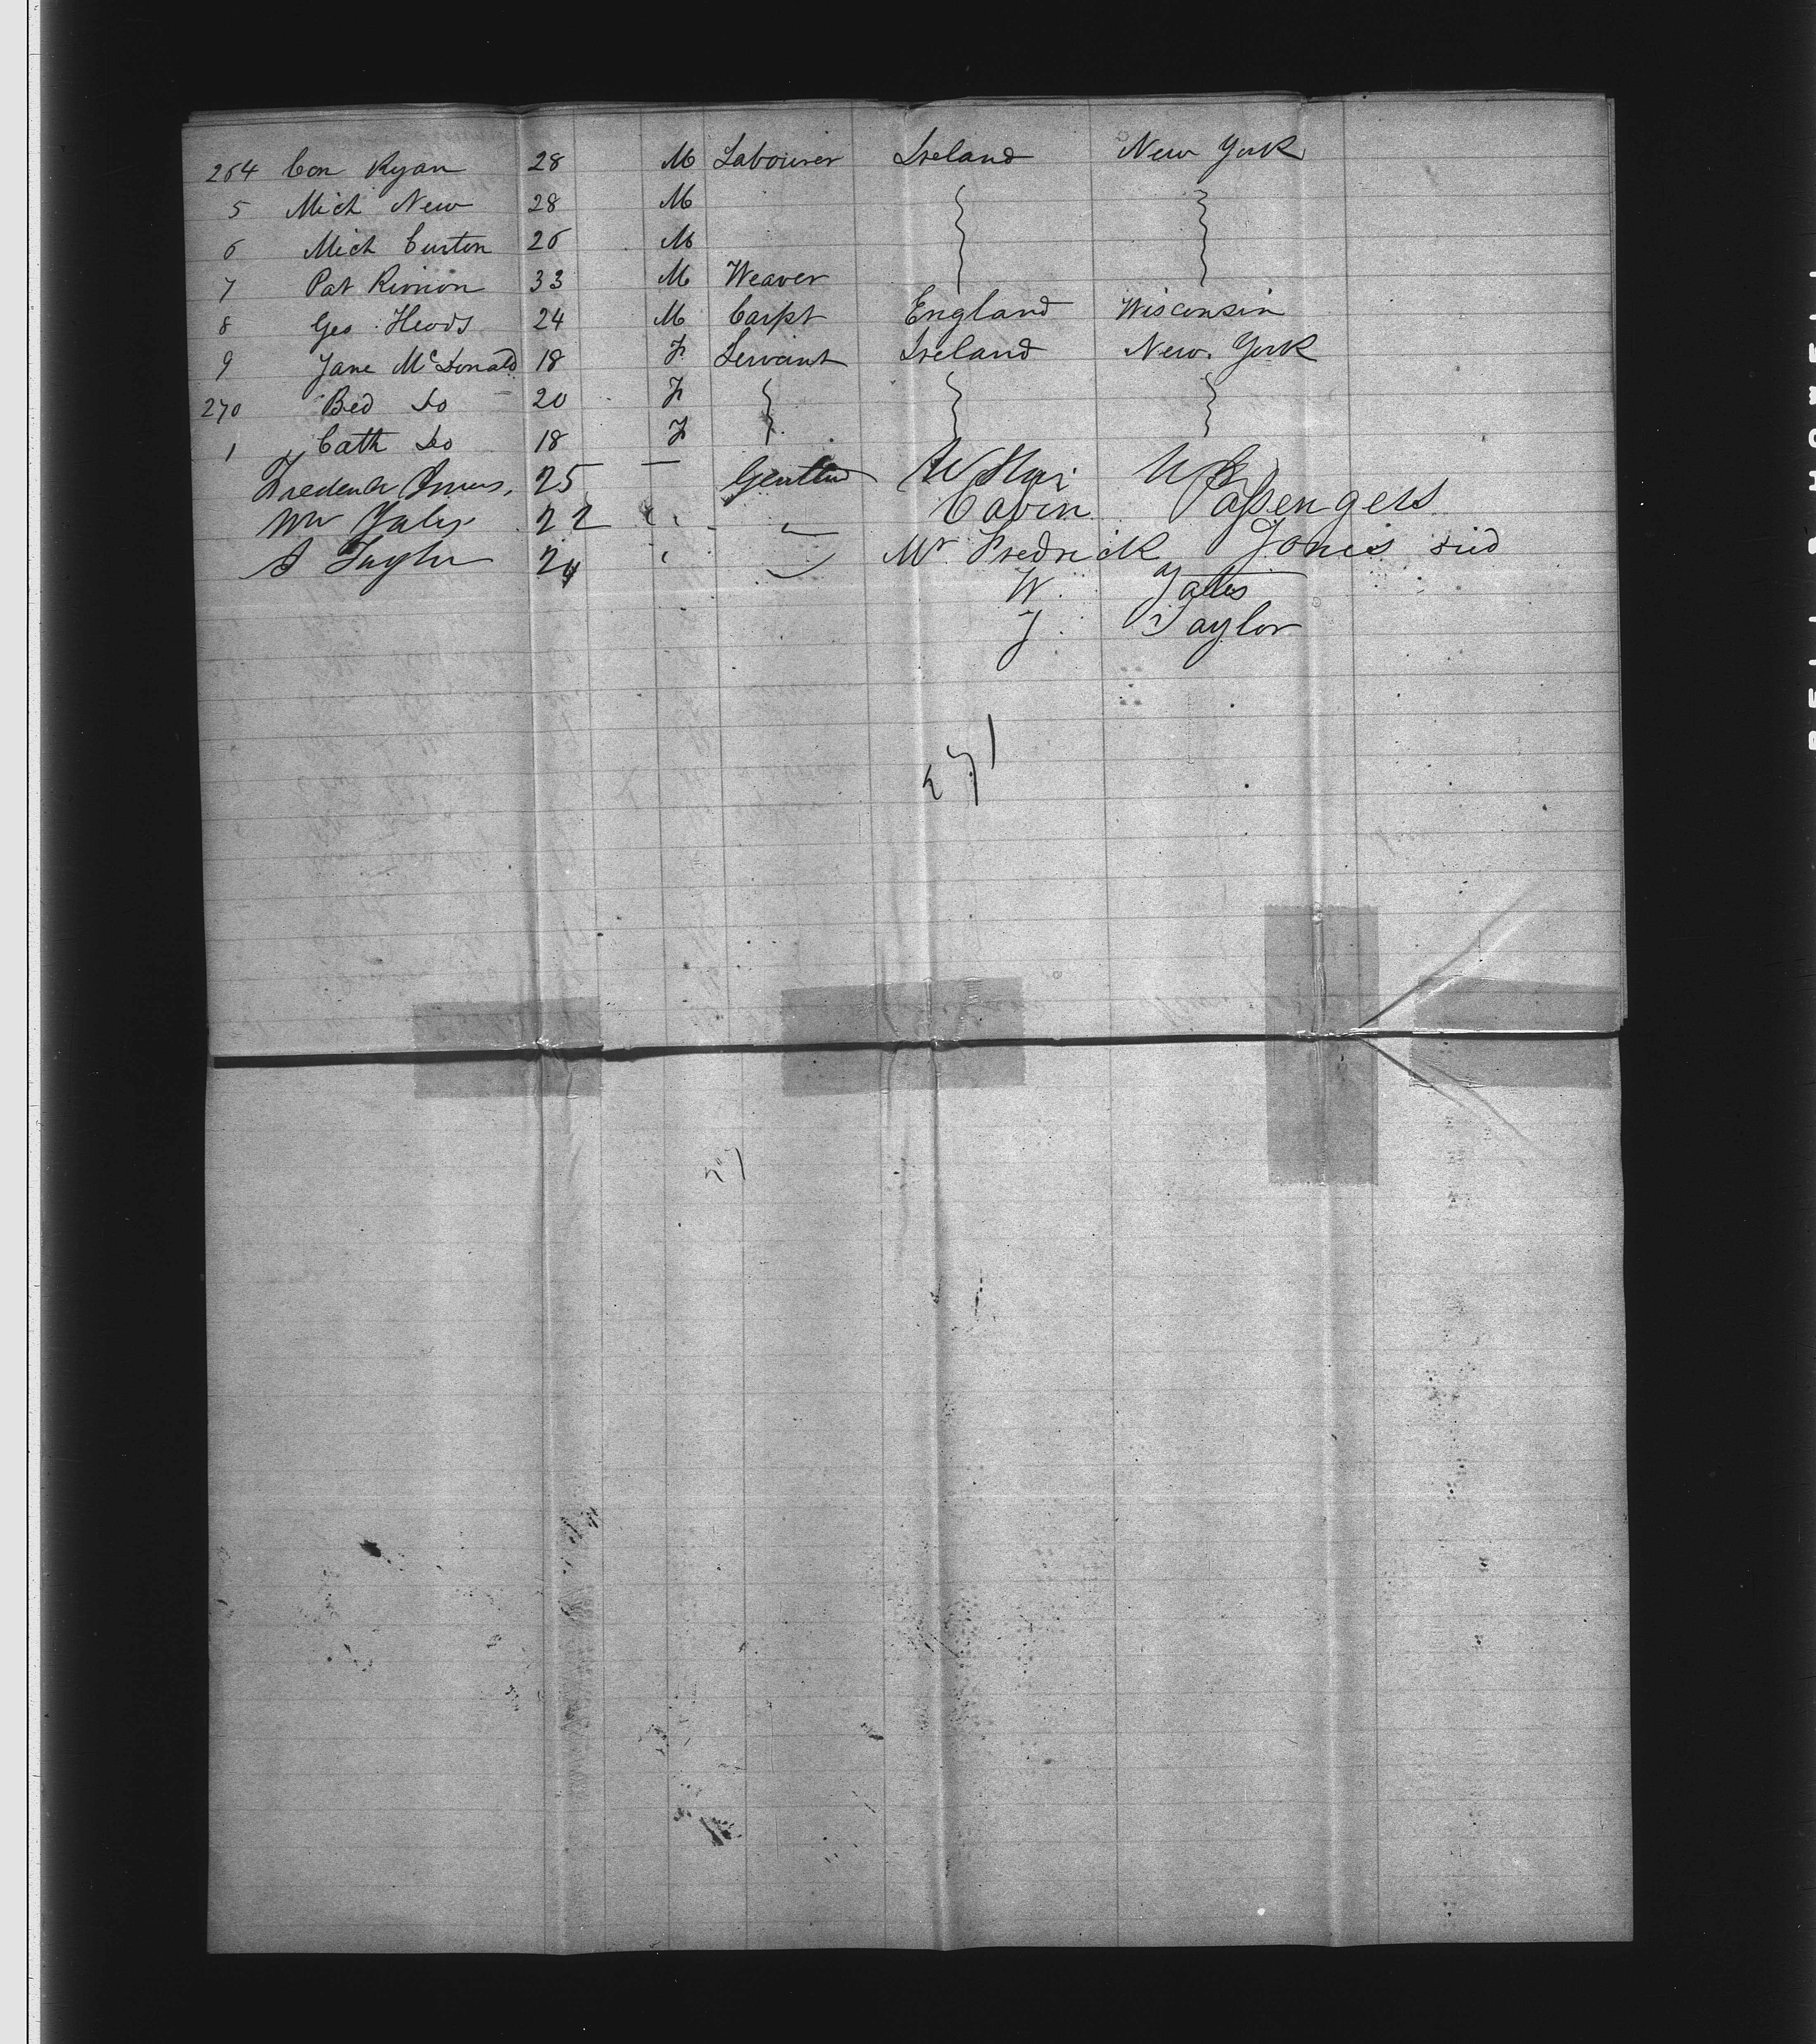 264 Con Ryan 28 M Labourer Ireland New York
5 Mich New 28 M
6 Mich Curton 26 M
7 Pat 33 M Weaver
8 Geo 24 M Carpt England Wisconsin
9 Jane McDonald 18 F Servant Ireland New York
270 Bed Do 20 F
1 Cath Do 18 F
Frederick 25 —
Wm 22 Cabin Passengers
24 Mr Fredrick Jones
W. Yates
J. Taylor
271
27